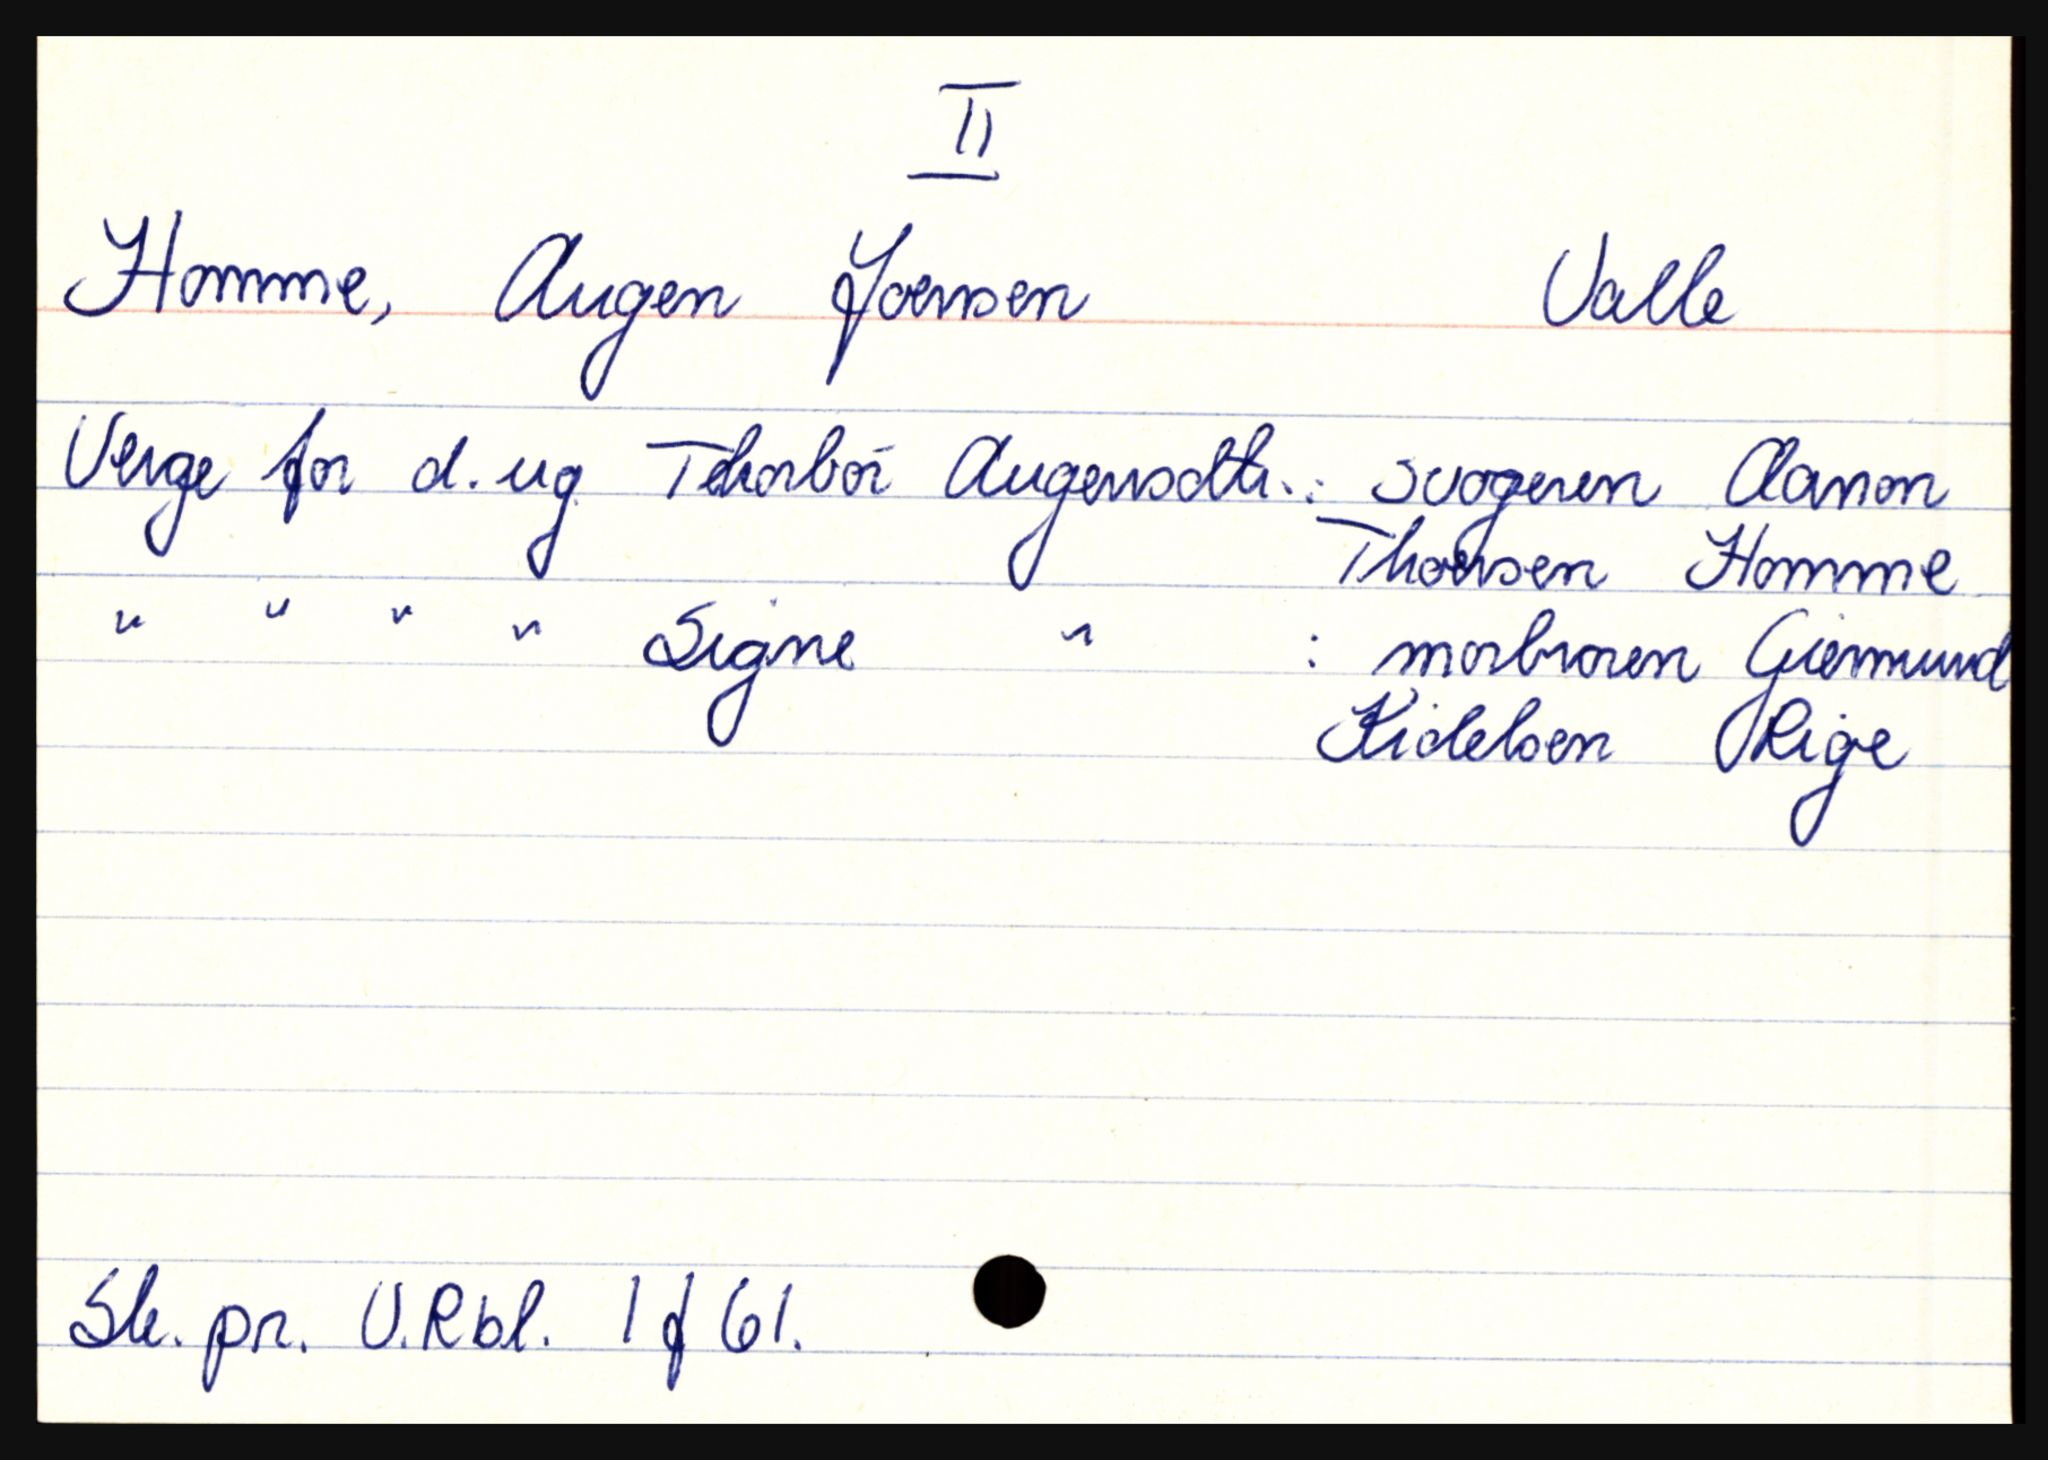 II
Homme, Augen Joensen Valle
Verge for d. ug Thorboi Augensdtr.: svogeren Aanon
Thorsen Homme
" " " " Signe " : morbroren Giermund
Kidelsen Rige
Sk. pr. V.Rbl. 1 f 61.